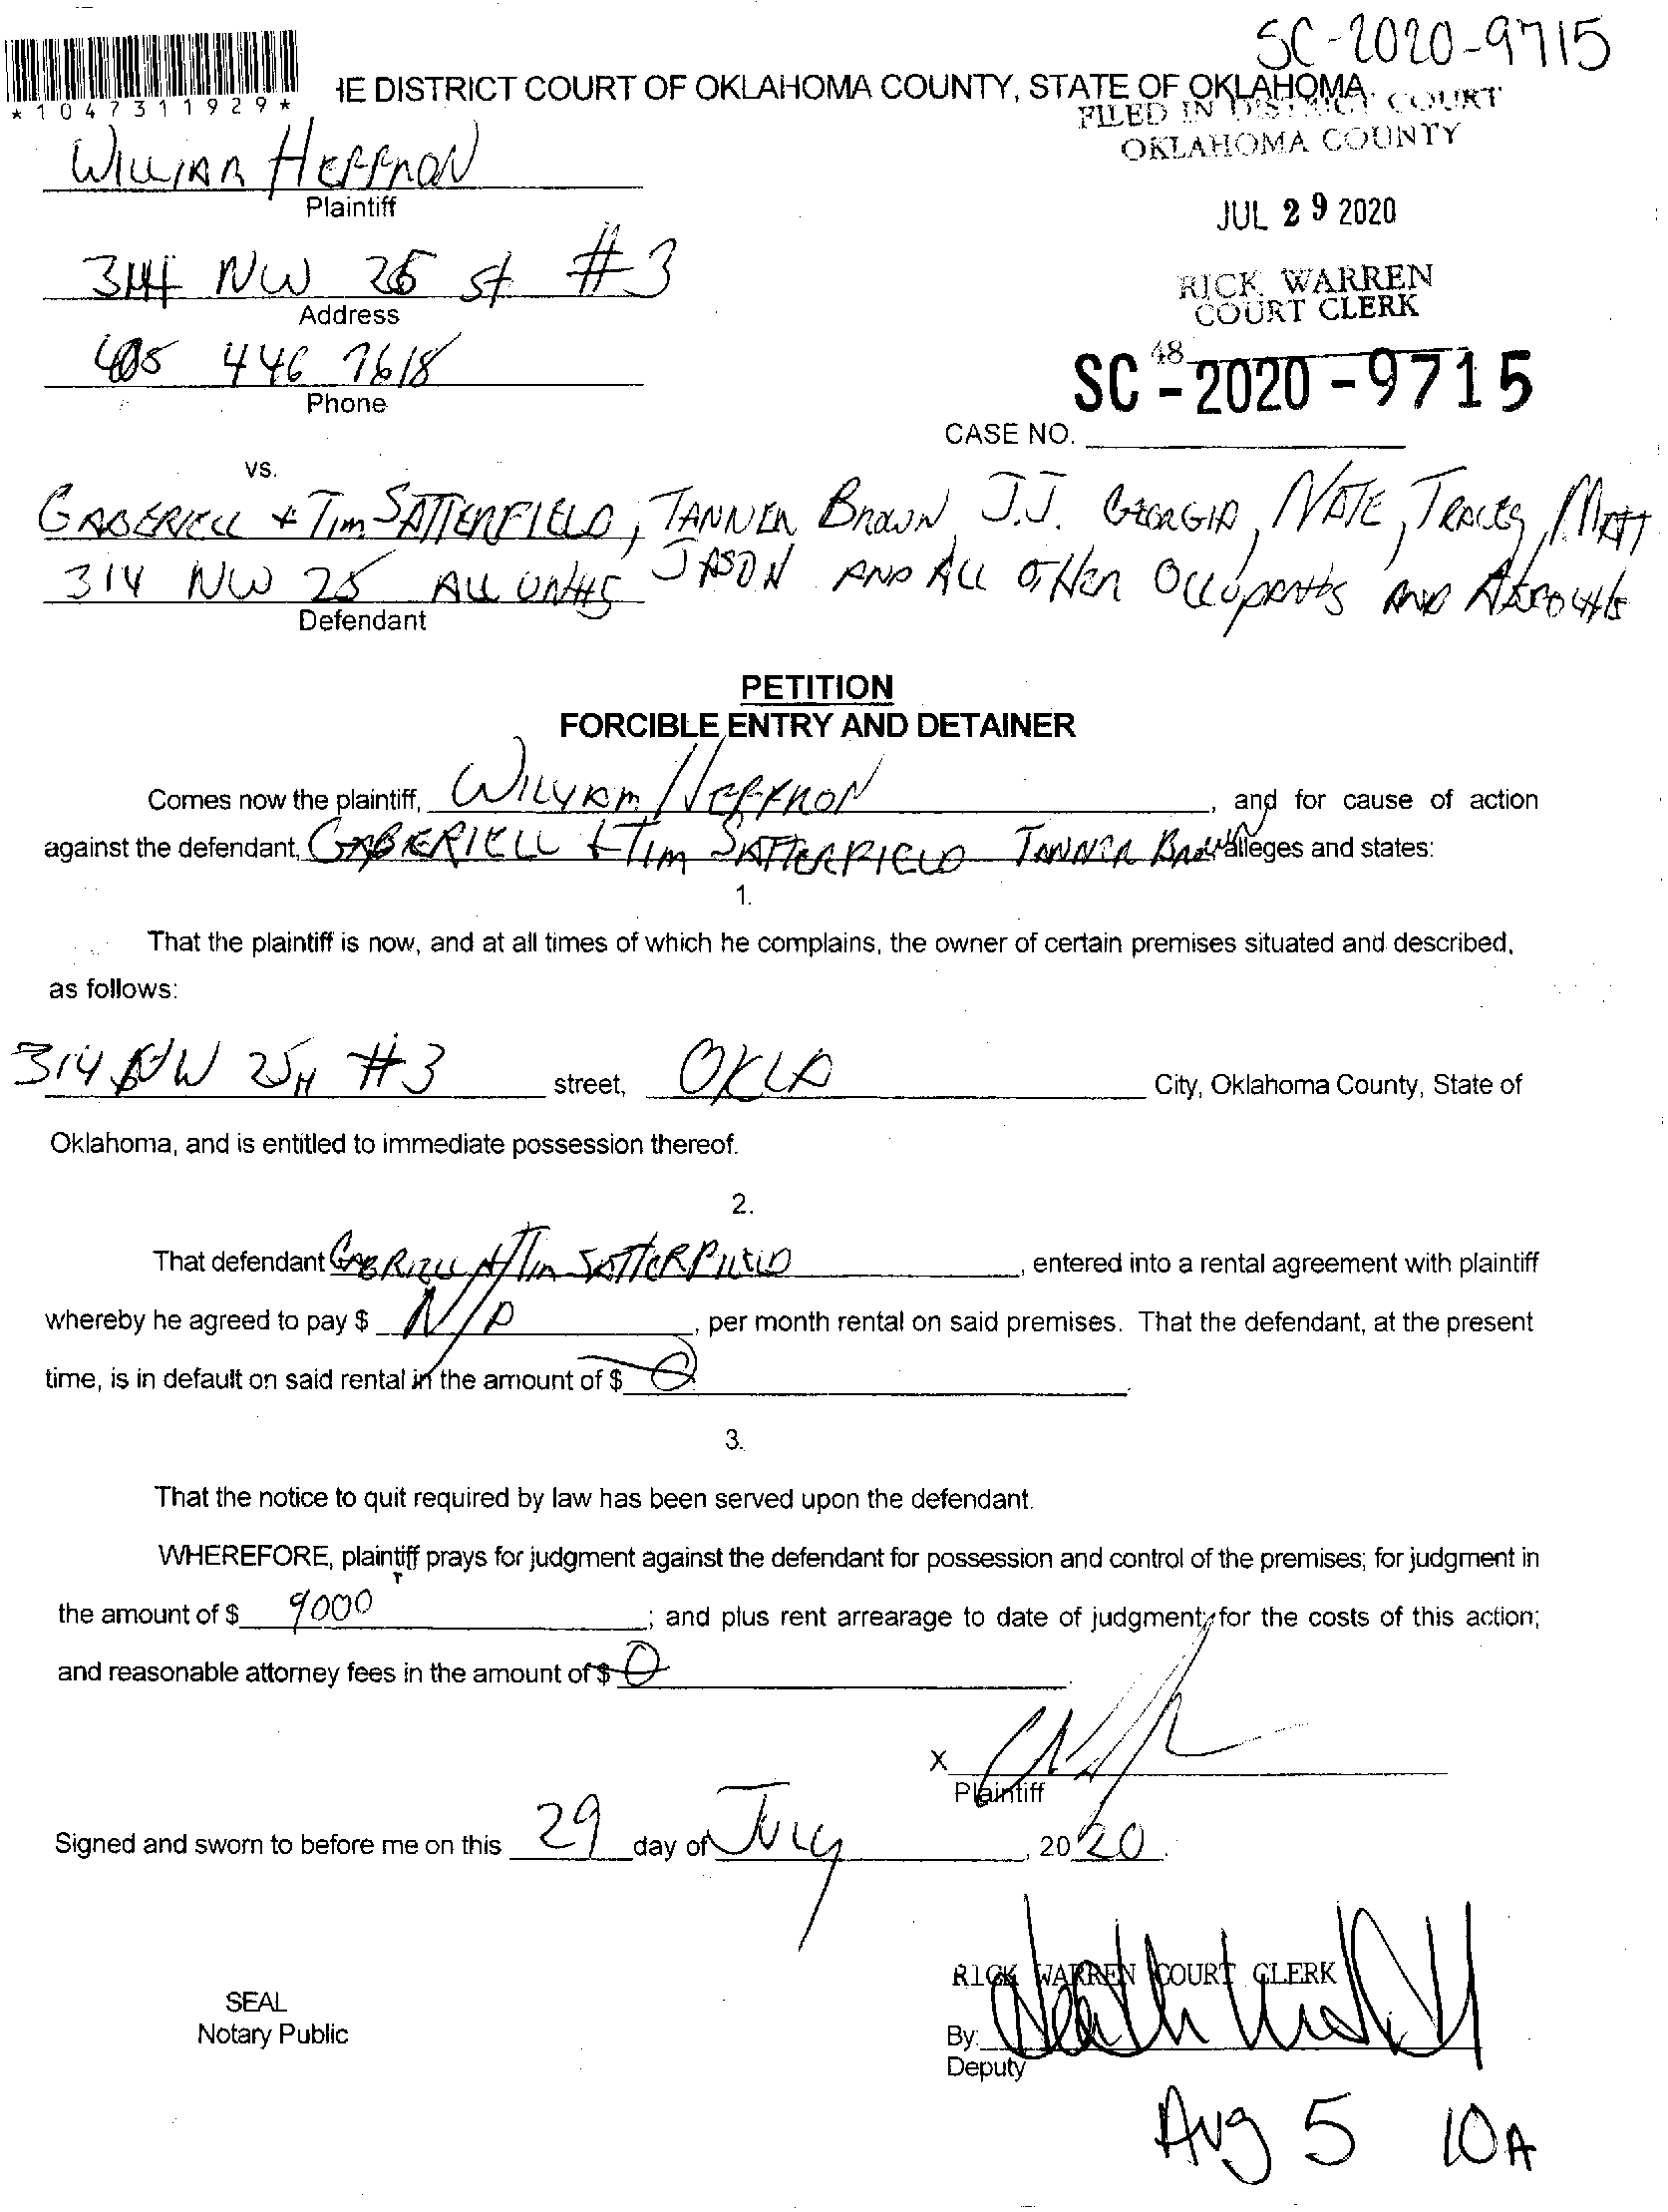 SC-2020-9715
*1047311929*
HE DISTRICT COURT OF OKLAHOMA COUNTY, STATE OF OKLAHOMA
FILED IN DISTRICT COURT
OKLAHOMA COUNTY
WILLIAM HEFFRON
Plaintiff
JUL 29 2020
314 NW 25 st #3
Address
RICK WARREN
COURT CLERK
405 446 7618
Phone
48
SC-2020-9715
CASE NO.
vs.
GABERIELL + Tim SATTERFIELD, TANNER BROWN J.J. GEORGIA, NATE, TRACEY, MATT
314 NW 25 ALL UNITS JASON AND ALL OTHER OCCUPANTS AND
Defendant
PETITION
FORCIBLE ENTRY AND DETAINER
Comes now the plaintiff, WILLIAM HEFFRON, and for cause of action
against the defendant, GABERIELL + Tim SATTERFIELD TANNER BROWN alleges and states:
1.
That the plaintiff is now, and at all times of which he complains, the owner of certain premises situated and described,
as follows:
314 NW 25 #3 street, OKLA City, Oklahoma County, State of
Oklahoma, and is entitled to immediate possession thereof.
2.
That defendant GABRIELL Tim SATTERFIELD, entered into a rental agreement with plaintiff
whereby he agreed to pay $ N/A, per month rental on said premises. That the defendant, at the present
time, is in default on said rental in the amount of $ 0.
3.
That the notice to quit required by law has been served upon the defendant.
WHEREFORE, plaintiff prays for judgment against the defendant for possession and control of the premises; for judgment in
the amount of $ 9000; and plus rent arrearage to date of judgment; for the costs of this action;
and reasonable attorney fees in the amount of $ 0.
X
Plaintiff
Signed and sworn to before me on this 29 day of July, 2020.
RICK WARREN COURT CLERK
SEAL
Notary Public
By:
Deputy
Aug 5 10A